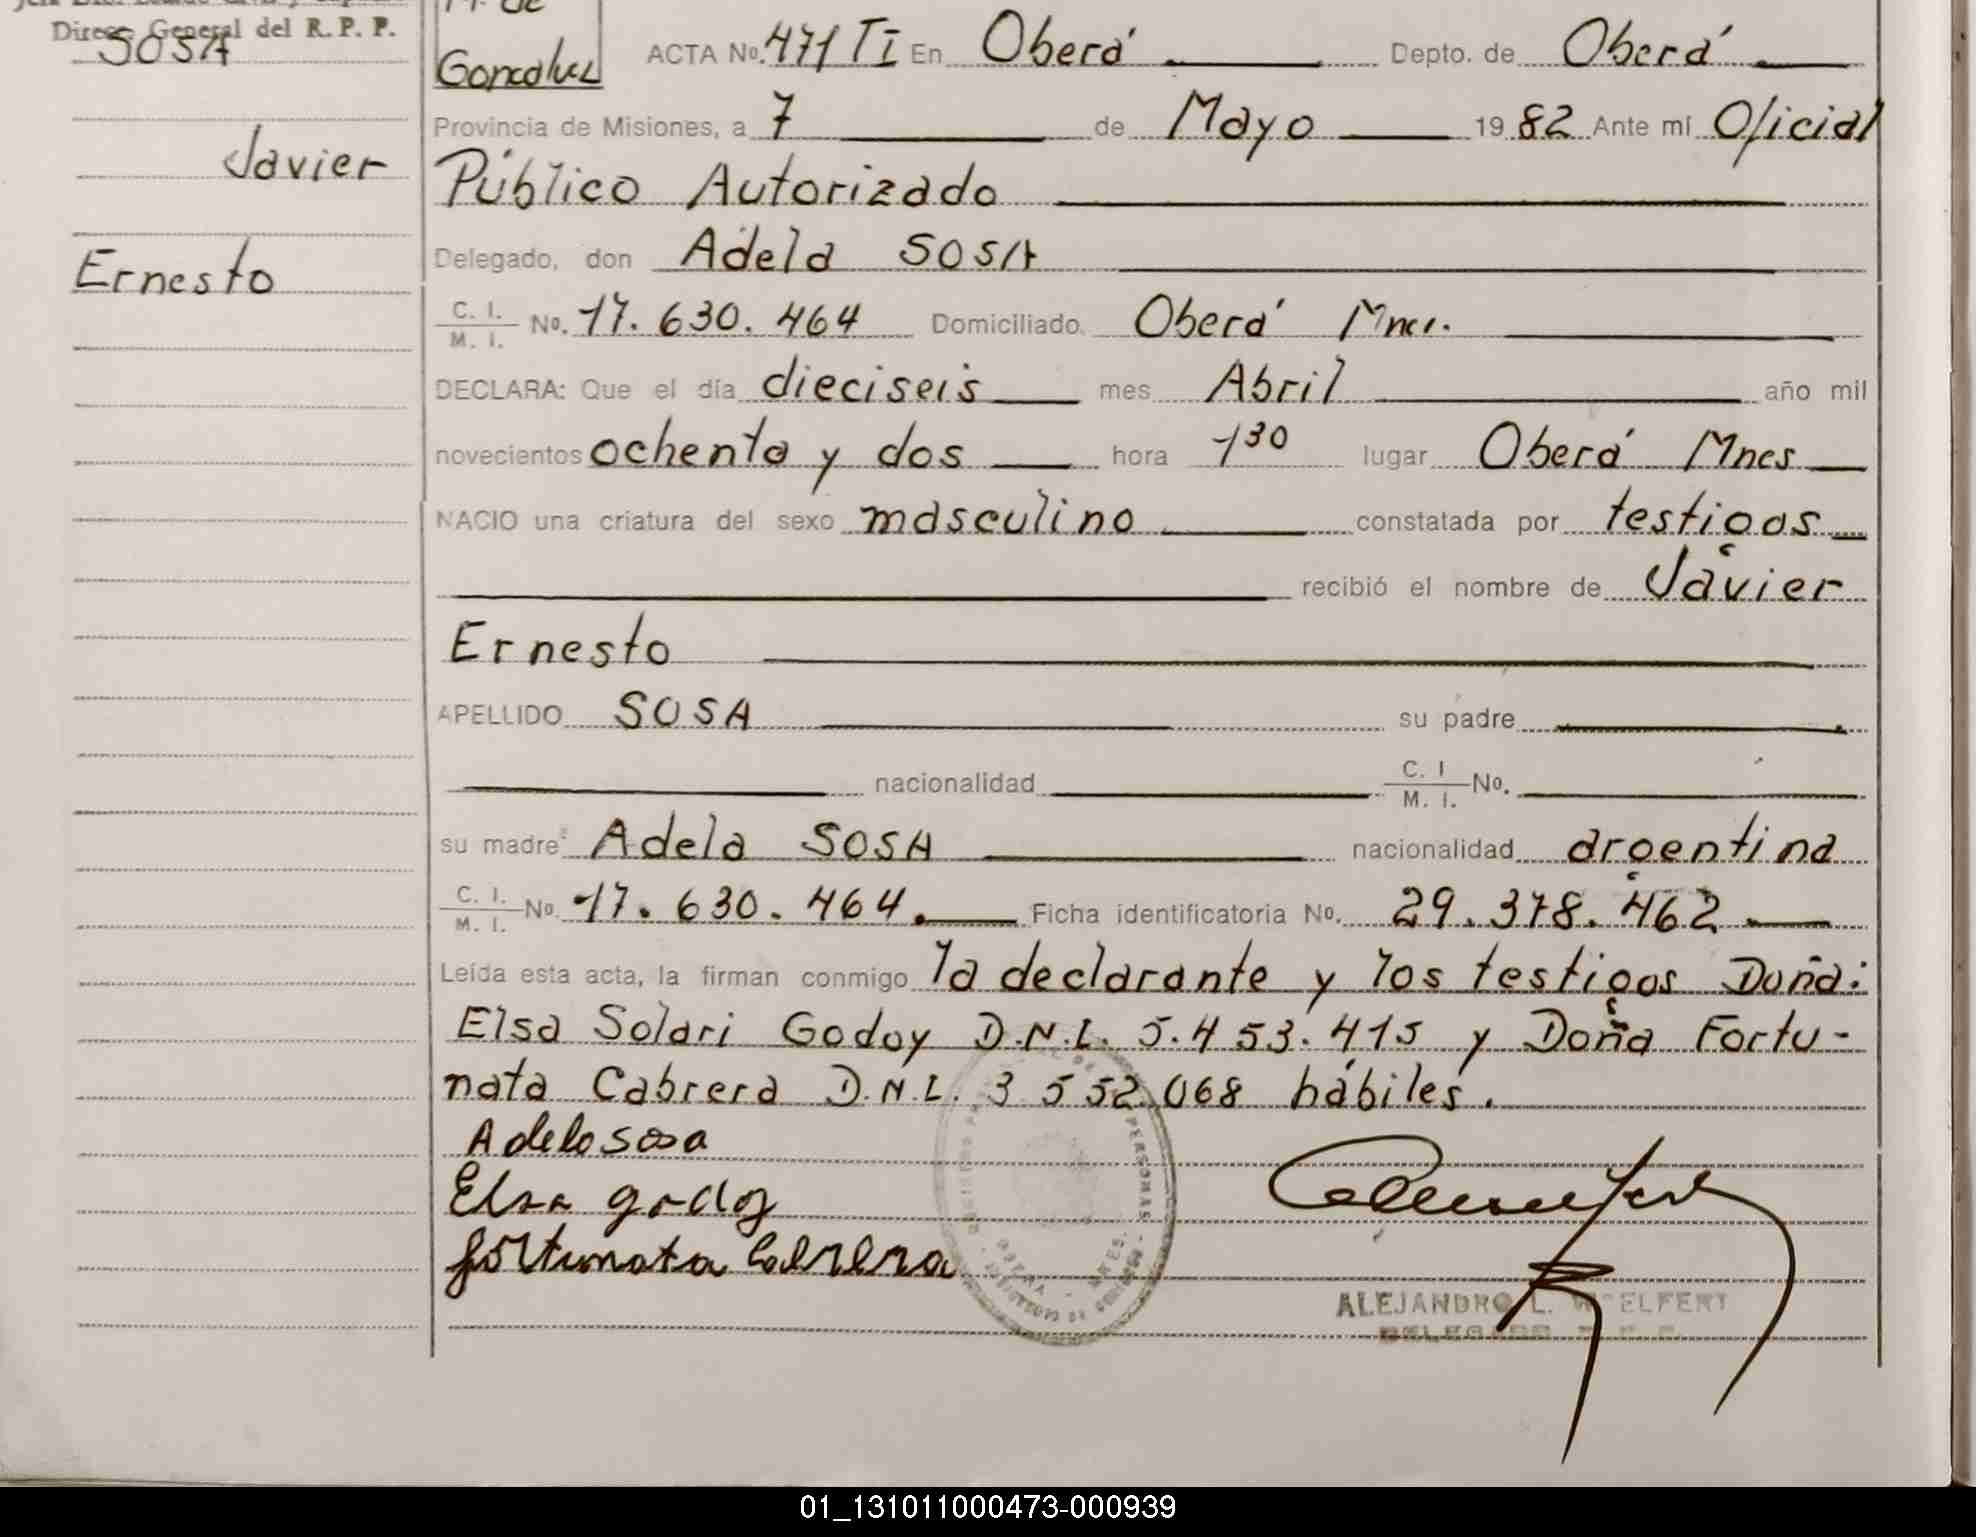 Direc. General del R. P. P.
SOSA
Javier
Ernesto
M. de
Goncalvez
ACTA No. 471 TI En Oberá Depto. de Oberá
Provincia de Misiones, a 7 de Mayo 1982 Ante mí Oficial
Público Autorizado
Delegado, don Adela SOSA
C. I. M. I. No. 17.630.464 Domiciliado Oberá Mnes.
DECLARA: Que el día dieciseis mes Abril año mil
novecientos ochenta y dos hora 1 30 lugar Oberá Mnes
NACIO una criatura del sexo masculino constatada por testigos
recibió el nombre de Javier
Ernesto
APELLIDO SOSA su padre
nacionalidad C. I M. I. No.
su madre Adela SOSA nacionalidad argentina
C. I. M. I. No. 17.630.464. Ficha identificatoria No. 29.378.462
Leída esta acta, la firman conmigo la declarante y los testigos Doña:
Elsa Solari Godoy D.N.I. 5.453.415 y Doña Fortu-
nata Cabrera D.N.I. 3 552.068 hábiles.
Adela sosa
Elsa godoy
fortunata Cabrera
ALEJANDRO L. W ELFERT
DELEGADO
01_131011000473-000939